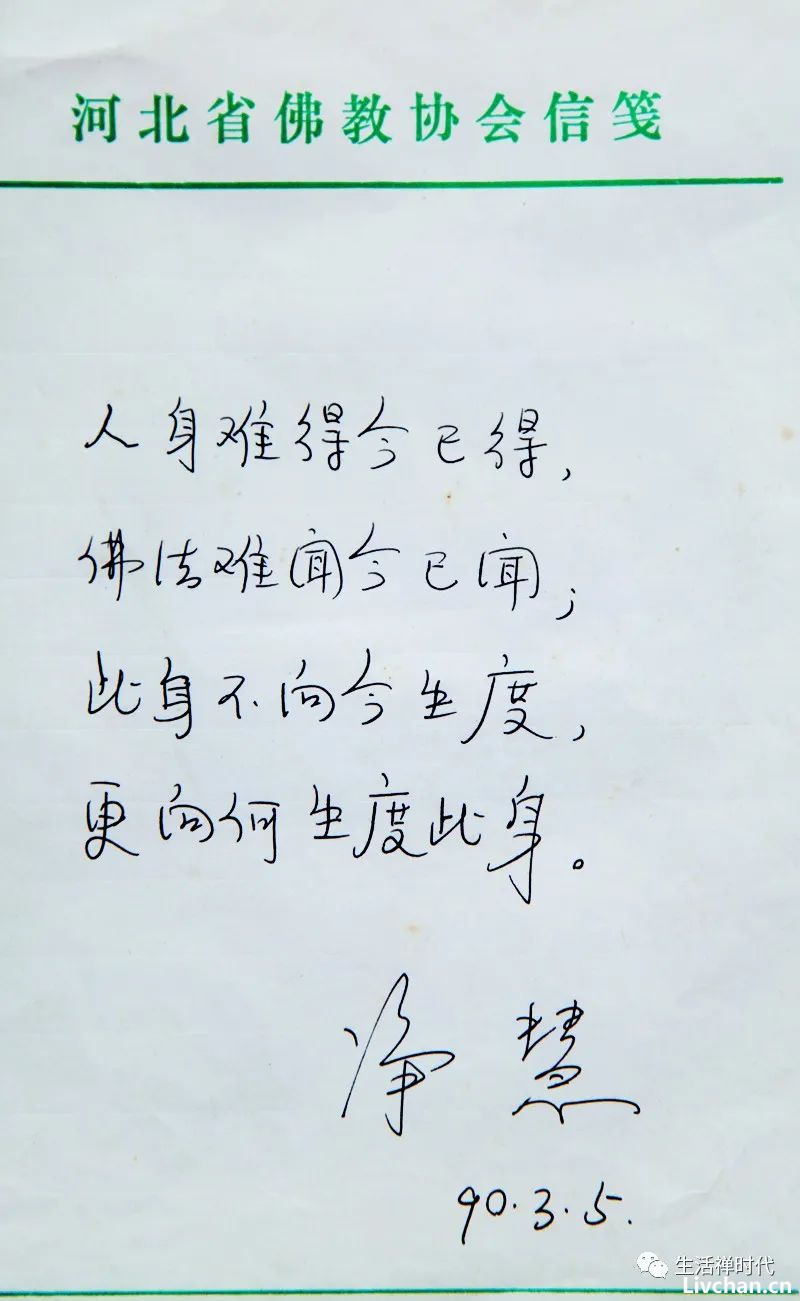 河北省佛教协会信笺
人身难得今已得,
佛法难闻今已闻;
此身不向今生度,
更向何生度此身。
净慧
90.3.5.
生活禅时代
Livchan.cn